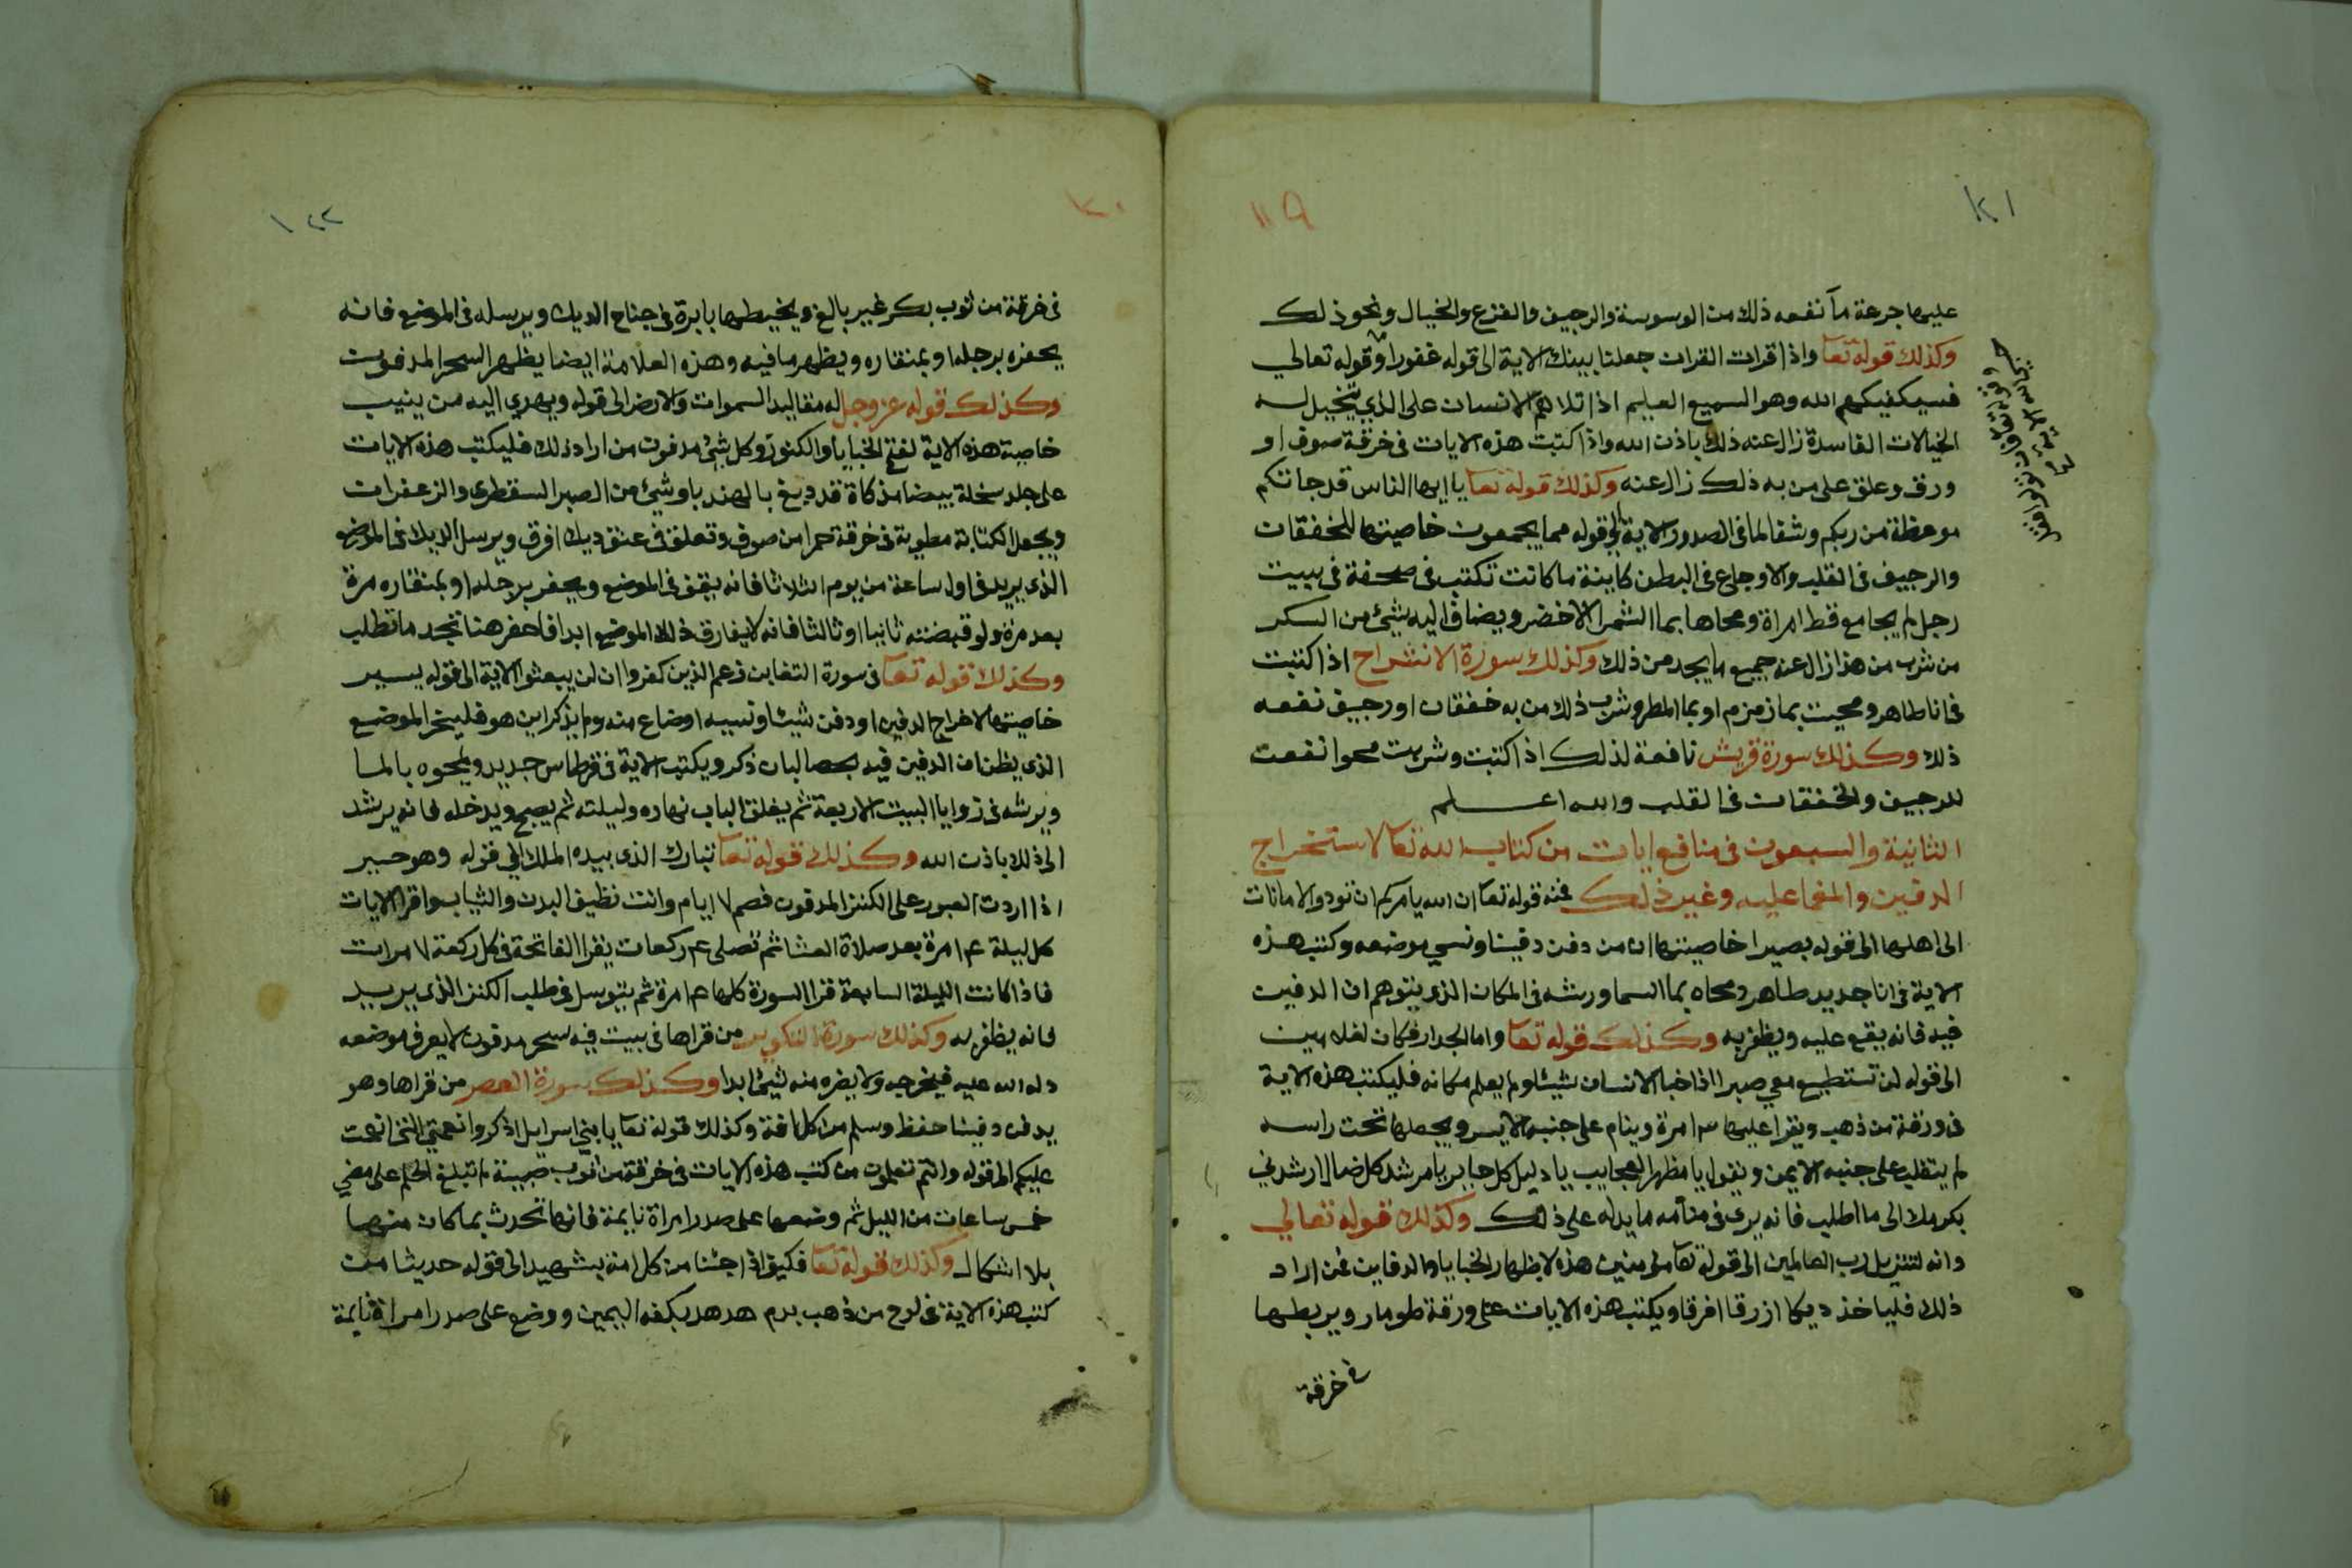 ١٢١
١١٩
عليها جرعة مآ نفعه ذلك من الوسوسة والرجيف والفزع والخيال ونحو ذلك
وكذلك قوله تعا واذا قرات القران جعلنا بينك الاية الى قوله غفورا وقوله تعالي
فسيكفيكهم الله وهو السميع العليم اذا تلاهم الانسان على الذي يتخيل له
الخيالات الفاسدة زال عنه ذلك باذن الله واذا كتبت هذه الايات في خرقة صوف او
ورق وعلق على من به ذلك زال عنه وكذلك قوله تعا يا ايها الناس قد جاتكم
موعظة من ربكم وشفا لما في الصدور الاية الى قوله مما يجمعون خاصيتها للخفقان
والرجيف في القلب والاوجاع في البطن كاينة ما كانت تكتب في صحفة في بيت
رجل لم يجامع قط امراة ومحاها بما الشمر الاخضر ويضاف اليه شيئ من السكر
من شرب من هذا زال عنه جميع ما يجد من ذلك وكذلك سورة الانشراح اذا كتبت
في انا طاهر ومحيت بما زمزم او بما المطر وشرب ذلك من به خفقان او رجيف نفعه
ذلك وكذلك سورة قريش نافعة لذلك اذا كتبت وشربت محوا نفعت
للرجيف والخفقان في القلب والله اعلم
الثانية والسبعون في منافع ايات من كتاب الله تعا لاستخراج
الدفين والمغما عليه وغير ذلك فمنه قوله تعا ان الله يامركم ان تودوا الامانات
الى اهلها الى قوله بصيرا خاصيتها ان من دفن دفينا ونسي موضعه وكتب هذه
الاية في انا جديد طاهر ومحاه بما السما ورشه في المكان الذي يتوهم ان الدفين
فيه فانه يقع عليه ويظفر به وكذلك قوله تعا واما الجدار فكان لغلامين
الى قوله لن تستطيع معي صبرا اذا خبا الانسان شيئا ولم يعلم مكانه فليكتب هذه الاية
في ورقة من ذهب ويقرا عليها امرة وينام على جنبه الايسر ويجعلها تحت راسه
لم يتقلب على جنبه الايمن ويقول يا مظهر العجايب يا دليل كل حاير يا مرشد كل ضال ارشدني
بكرمك الى ما اطلب فانه يرى في منامه ما يدله على ذلك وكذلك قوله تعالي
وانه لتنزيل رب العالمين الى قوله مومنين هذه لاظهار الخبايا والدفاين فمن اراد
ذلك فلياخذ ديكا ازرقا افرقا ويكتب هذه الايات على ورقة طومار ويربطها
في خرقة
١٢٢
١٢٠
في خرقة من ثوب بكر غير بالغ ويخيطها بابرة في جناح الديك ويرسله في الموضع فانه
يحفره برجله او بمنقاره ويظهر ما فيه وهذه العلامة ايضا يظهر السحر المدفون
وكذلك قوله عز وجل له مقاليد السموات والارض الى قوله ويهدي اليه من ينيب
خاصية هذه الاية لفتح الخبايا والكنوز وكل شيئ مدفون من اراد ذلك فليكتب هذه الايات
على جلد سخلة بيضا مذكاة قد دبغ بالهندبا وشيئ من الصبر السقطرى والزعفران
ويجعل الكتابة مطوية في خرقة حمرا من صوف وتعلق في عنق ديك افرق ويرسل الديك في الموضع
الذي يريد في اول ساعة من يوم الثلاثا فانه يقف في الموضع ويحفر برجله او بمنقاره مرة
بعد مرة ولو قبضته ثانيا او ثالثا فانه لا يفارق ذلك الموضع ابدا فاحفر هنا تجد ما تطلب
وكذلك قوله تعا في سورة التغابن زعم الذين كفروا ان لن يبعثوا الاية الى قوله يسير
خاصيتها لاخراج الدفين او دفن شيئا ونسيه او ضاع منه ولم يذكر اين هو فليبخر الموضع
الذي يظن ان الدفين فيه بحصا لبان ذكر ويكتب الاية في قرطاس جديد ويمحوه بالما
ويرشه في زوايا البيت الاربعة ثم يغلق الباب نهاره وليلته ثم يصبح ويدخله فانه يرشد
الى ذلك باذن الله وكذلك قوله تعا تبارك الذي بيده الملك الي قوله وهو حسير
اذا اردت العبور على الكنز المدفون فصم ٧ ايام وانت نظيف البدن والثياب واقرا الايات
كل ليلة مرة بعد صلاة العشا ثم تصلى ركعات يقرا الفاتحة في كل ركعة ٧ مرات
فاذا كانت الليلة السابعة قرا السورة كلها مرة ثم يتوسل في طلب الكنز الذي يريد
فانه يظفر به وكذلك سورة التكوير من قراها في بيت فيه سحر مدفون لا يعرف موضعه
دله الله عليه فيخرجه ولا يضره منه شيئ ابدا وكذلك سورة العصر من قراها وهو
يدفن دفينا حفظ وسلم من كل افة وكذلك قوله تعا يا بني اسرايل اذكروا نعمتي التي انعمت
عليكم الى قوله وانتم تعلمون من كتب هذه الايات في خرقة من ثوب صبية لم تبلغ الحلم على مضي
خمس ساعات من الليل ثم وضعها على صدر امراة نايمة فانها تحدث بما كان منها
بلا اشكال وكذلك قوله تعا فكيف اذا جئنا من كل امة بشهيد الى قوله حديثا من
كتب هذه الاية في لوح من ذهب بدم هدهد بكفه اليمين ووضع على صدر امراة نايمة